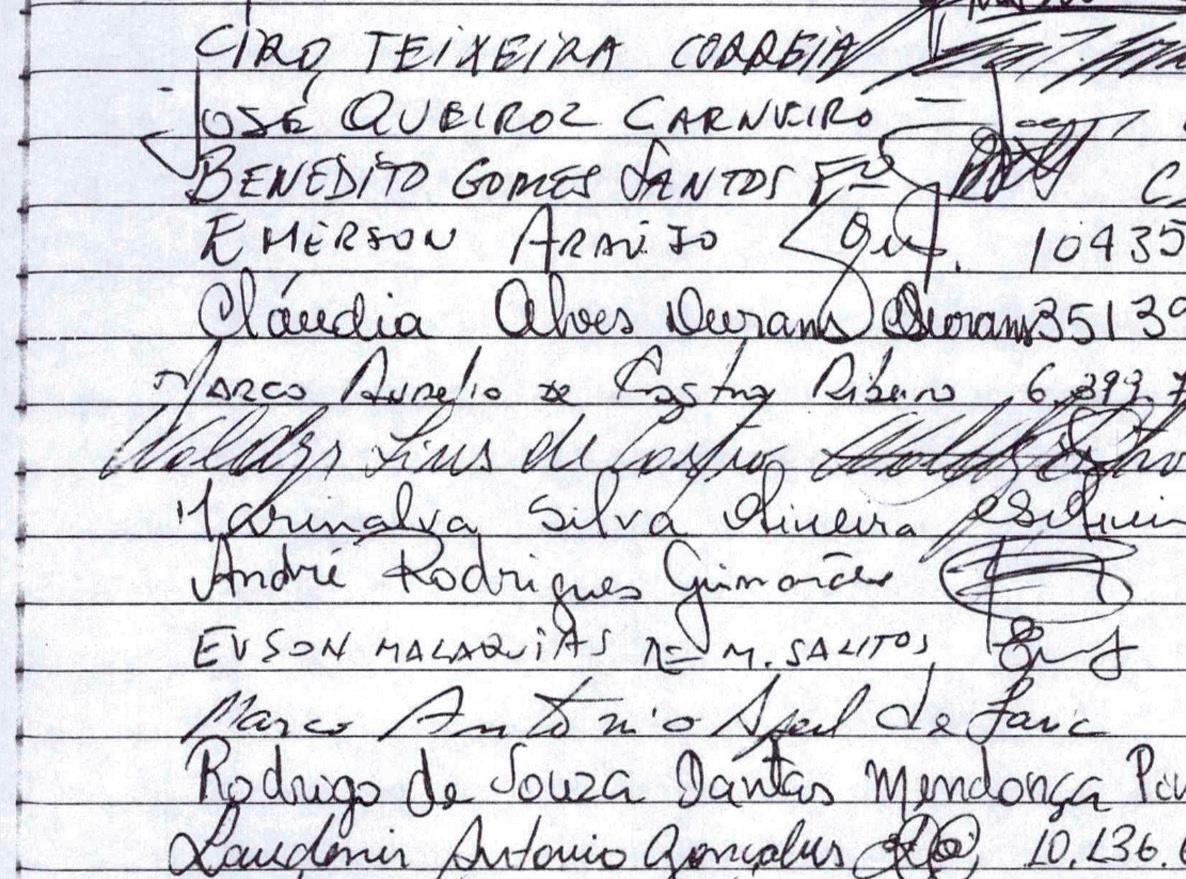 CIRO TEIXEIRA CORREIA
JOSÉ QUEIROZ CARNEIRO
BENEDITO GOMES SANTOS Fº
EMERSON ARAÚJO 10435
Cláudia Alves Durans Durans 35139
Marco Aurélio de Castro Ribeiro 6.393.7
de Castro
Marinalva Silva Oliveira
André Rodrigues Guimarães
EVSON MALAQUIAS DE M. SANTOS
Marco Antônio de
Rodrigo de Souza Dantas Mendonça
Antonio Gonçalves 10.136.6